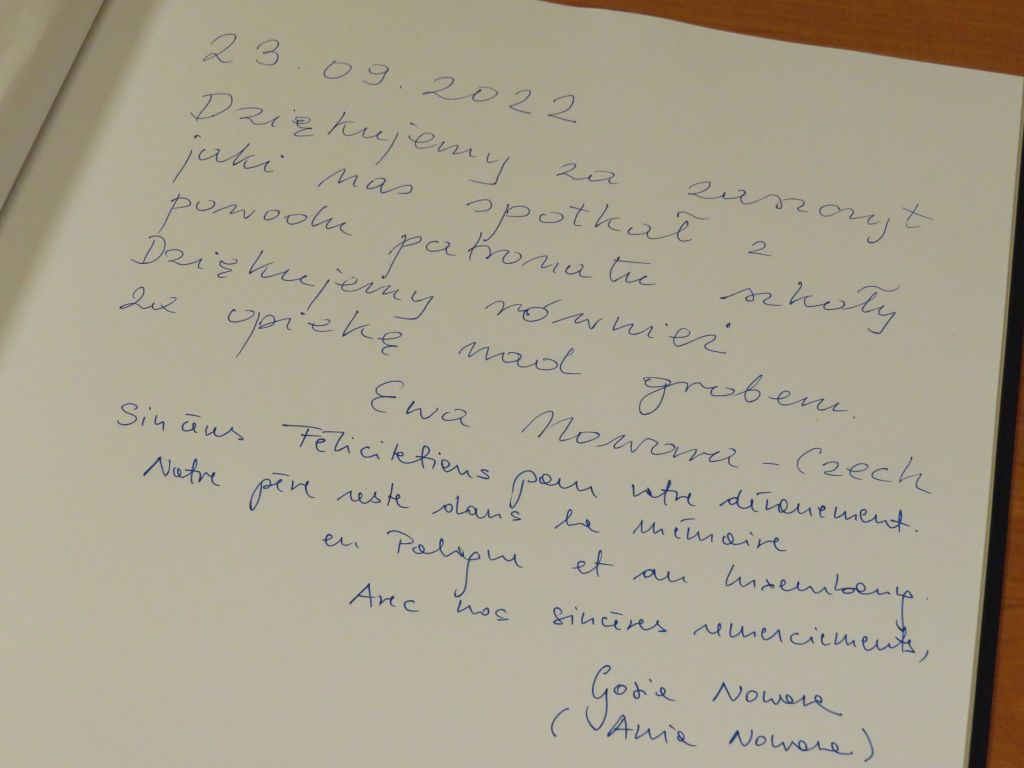 23.09.2022
Dziękujemy za zaszczyt
jaki nas spotkał z
powodu patronatu szkoły
Dziękujemy również
za opiekę nad grobem.
Ewa Nowara-Czech
Sincères Félicitations pour votre dévouement.
Notre père reste dans la mémoire
en Pologne et au Luxembourg.
Avec nos sincères remerciements,
Gosia Nowara
(Ania Nowara)